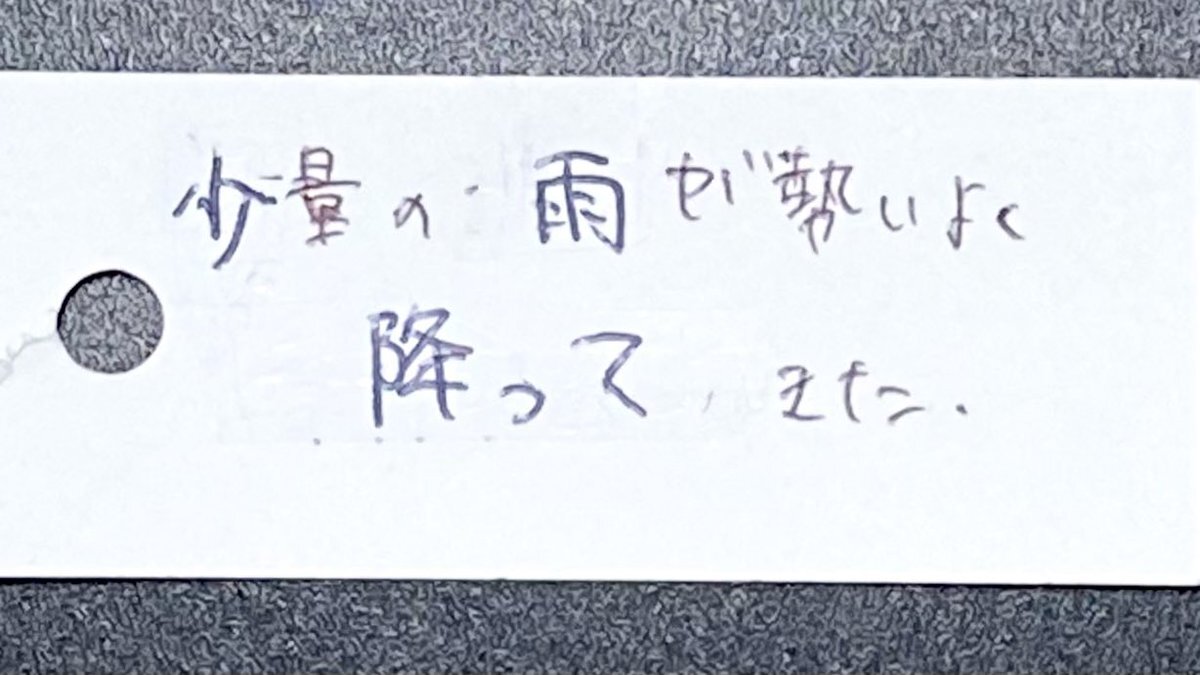 少量の雨が勢いよく
降ってきた.